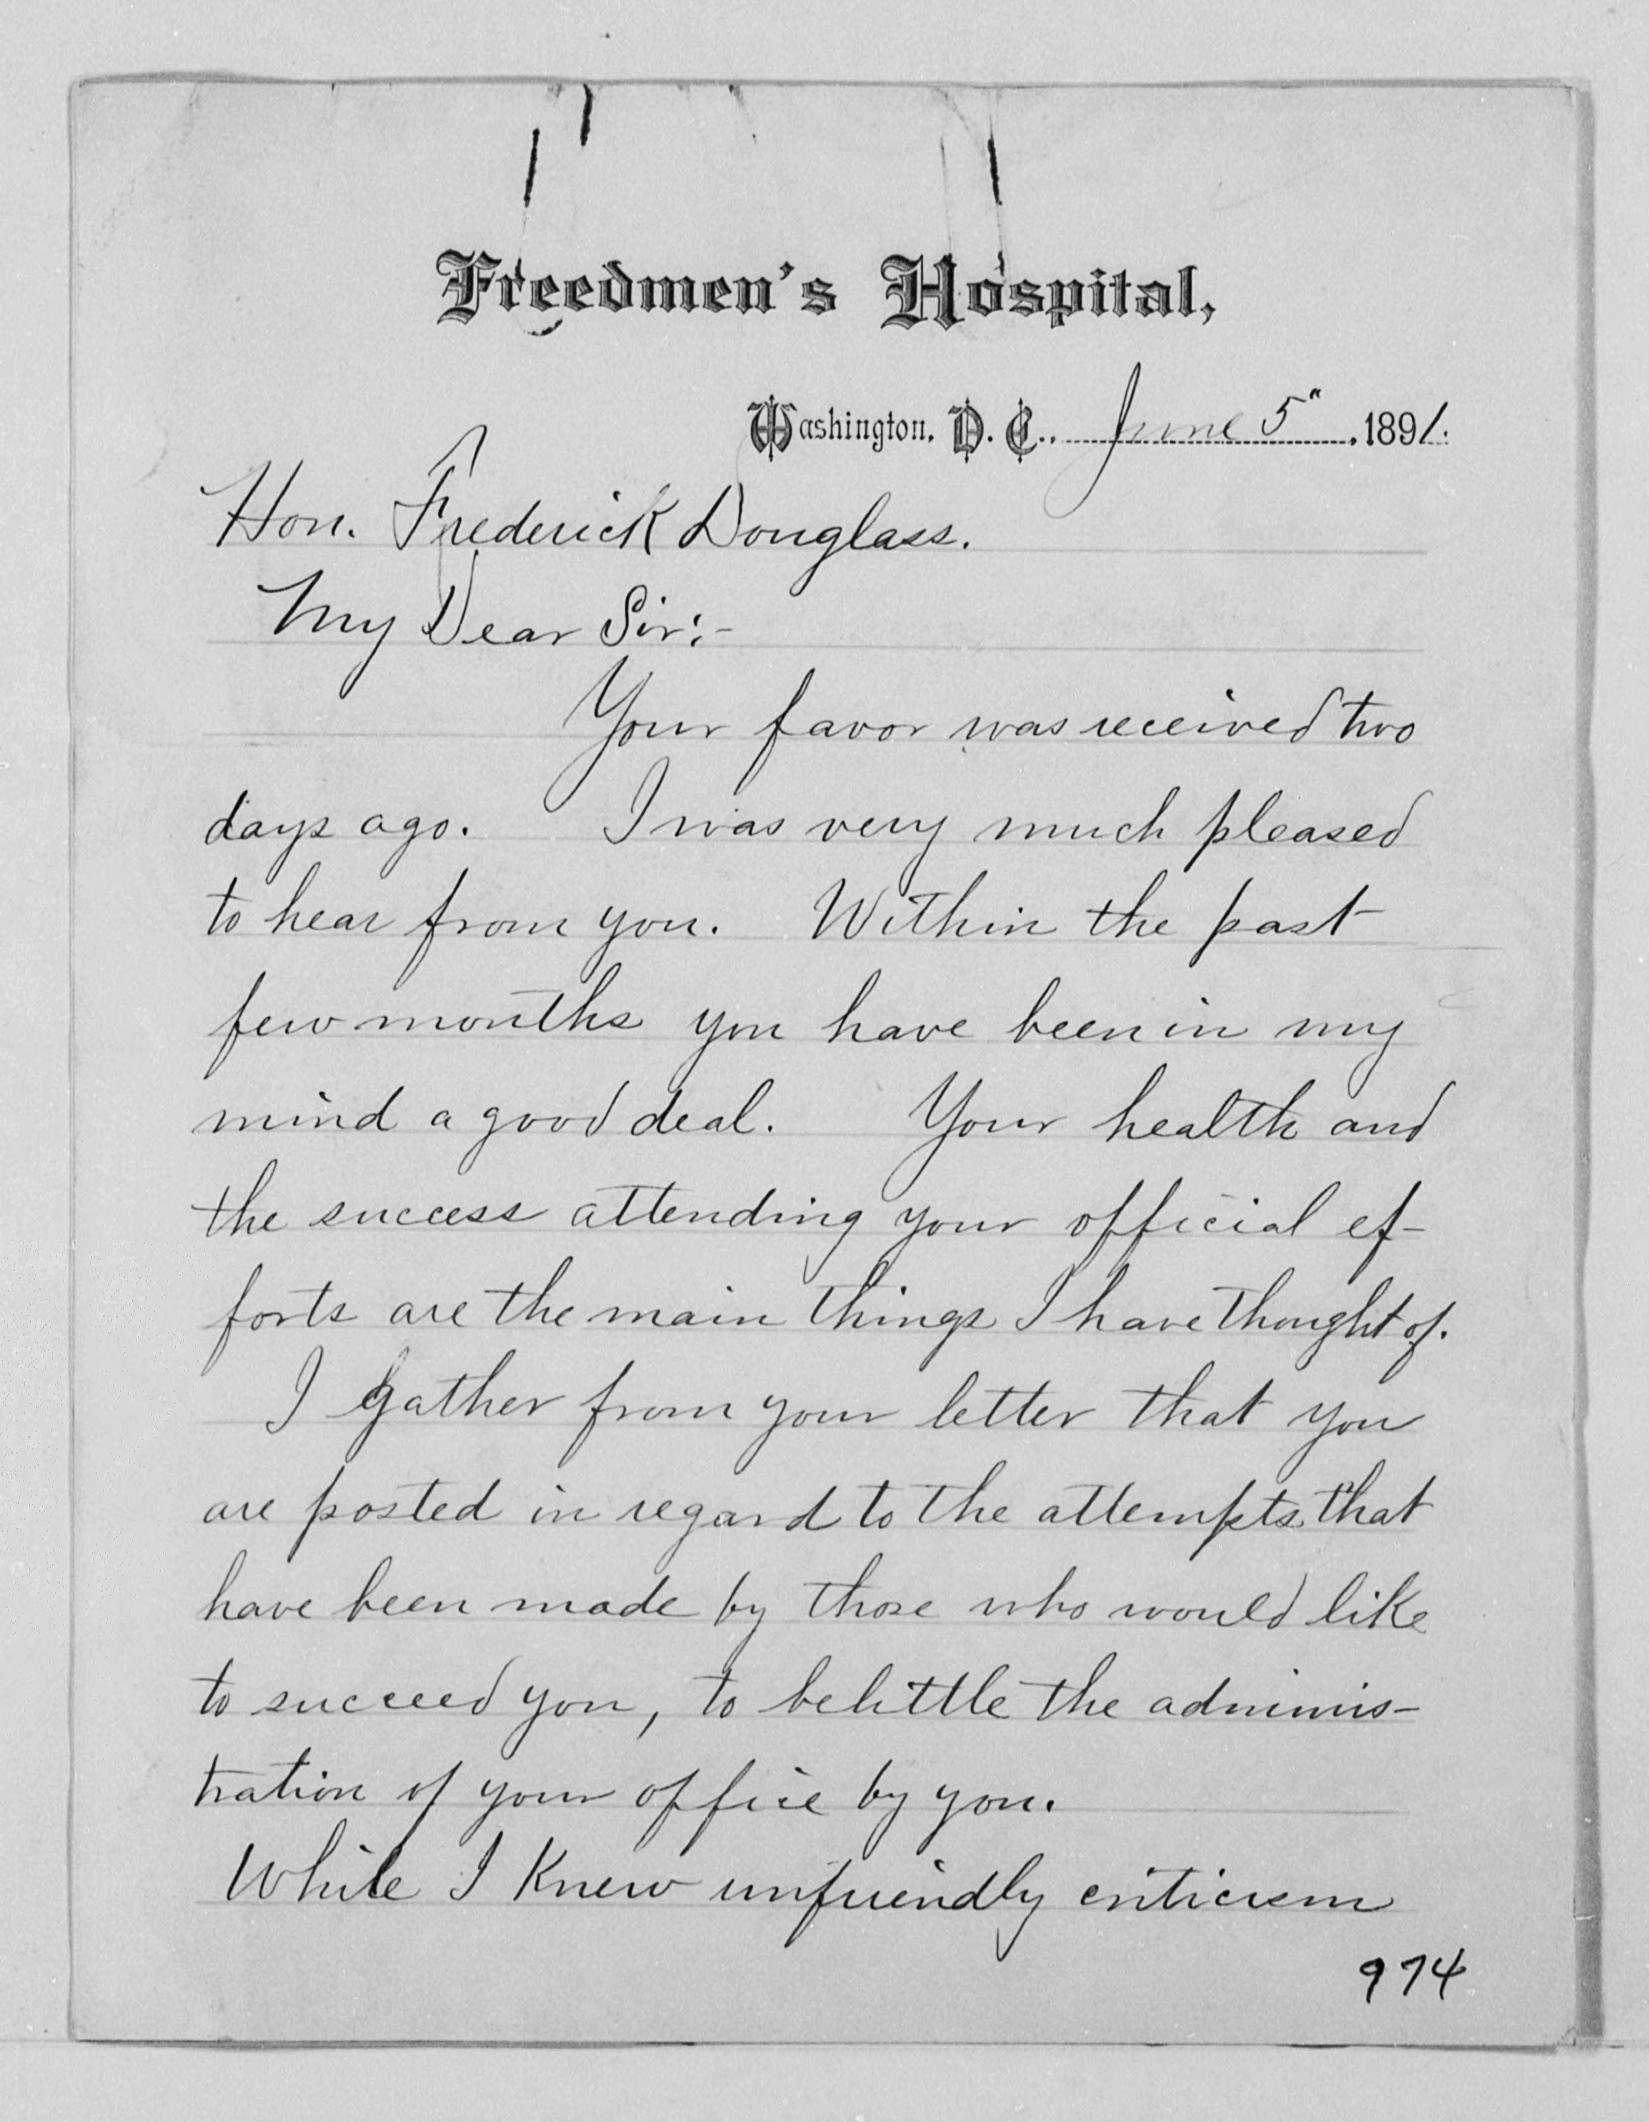 Freedmen's Hospital,
Washington, D. C., June 5" 1891.
Hon. Frederick Douglass.
My Dear Sir:-
Your favor was received two
days ago. I was very much pleased
to hear from you. Within the past
few months you have been in my
mind a good deal. Your health and
the success attending your official ef-
forts are the main things I have thought of.
I gather from your letter that you
are posted in regard to the attempts that
have been made by those who would like
to succeed you, to belittle the adminis-
tration of your office by you.
While I knew unfriendly criticism
974